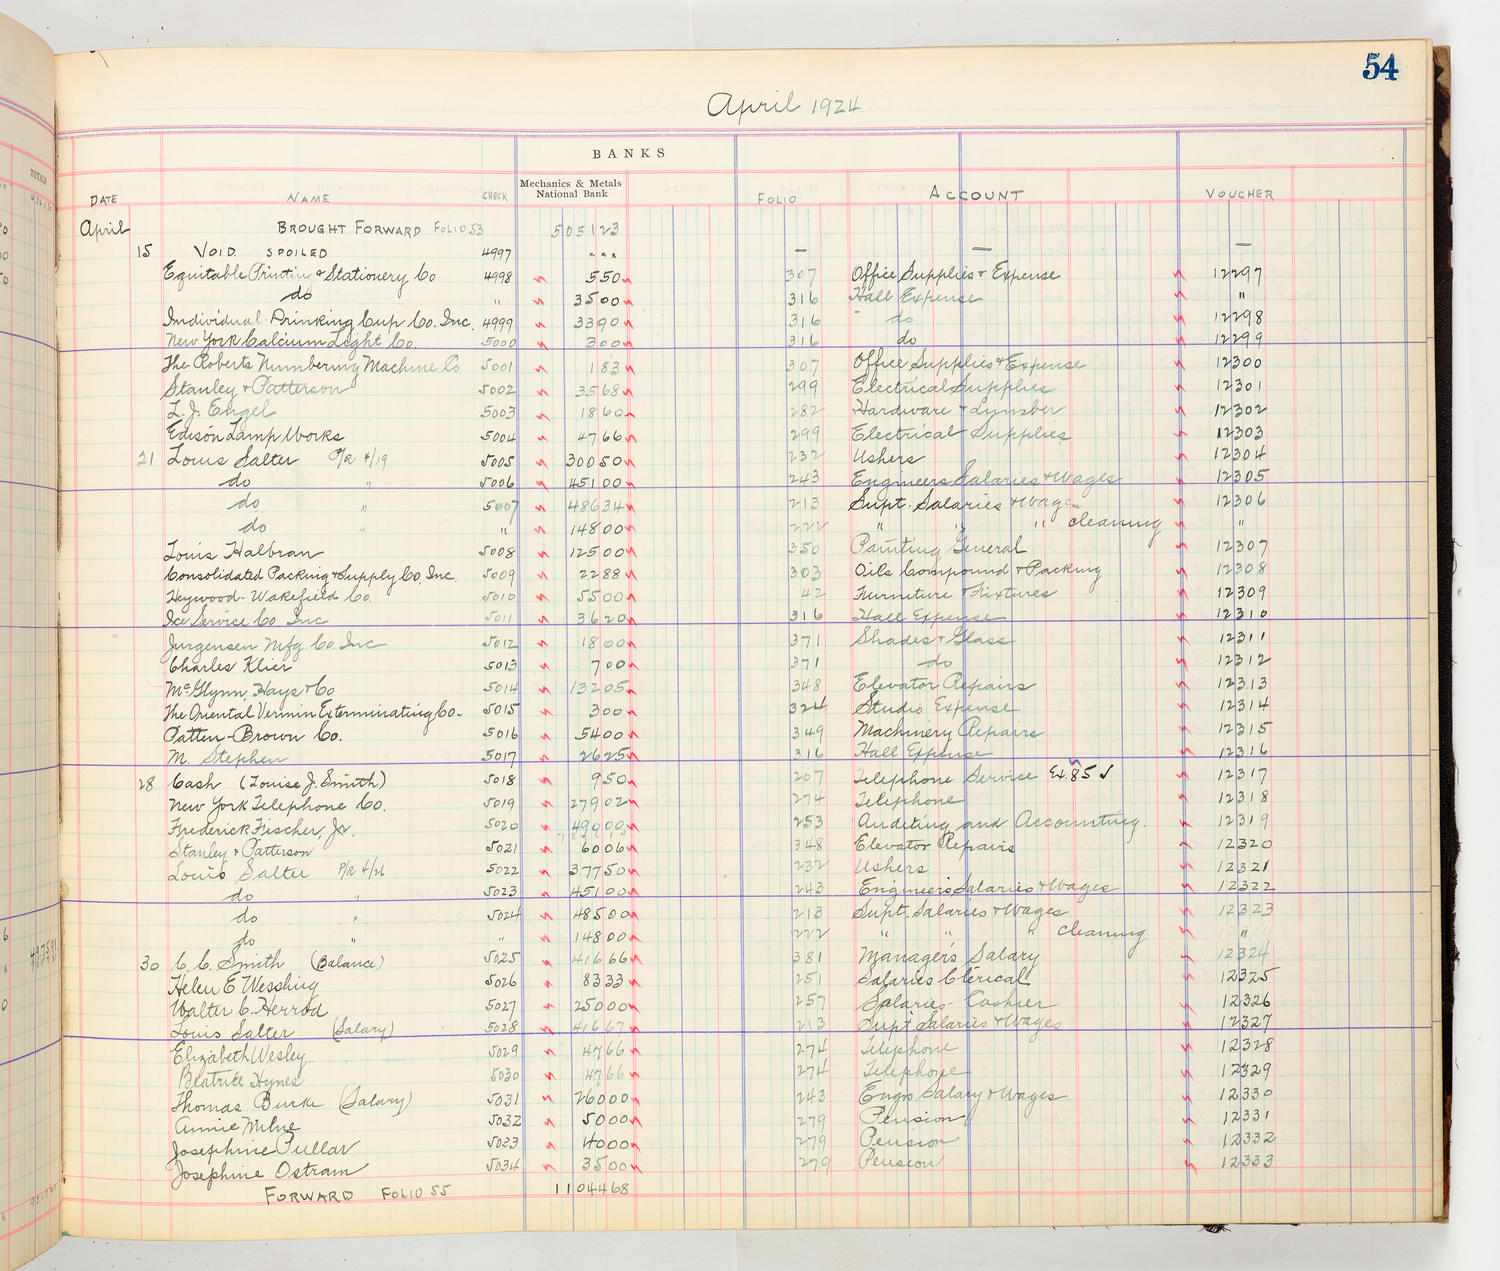 54
April 1924
BANKS
DATE NAME CHECK Mechanics & Metals National Bank FOLIO ACCOUNT VOUCHER
April BROUGHT FORWARD FOLIO 53 505123
15 VOID SPOILED 4997 " " " — — —
Equitable Printing & Stationery Co 4998 550 307 Office Supplies & Expense 12297
do " 3500 316 Hall Expense "
Individual Drinking Cup Co. Inc. 4999 3390 316 " do 12298
New York Calcium Light Co. 5000 300 316 do 12299
The Roberts Numbering Machine Co 5001 183 307 Office Supplies & Expense 12300
Stanley & Patterson 5002 3568 299 Electrical Supplies 12301
L. J. Engel 5003 1860 282 Hardware & Lumber 12302
Edison Lamp Works 5004 4766 299 Electrical Supplies 12303
21 Louis Salter P/R 4/19 5005 30050 232 Ushers 12304
do " 5006 45100 243 Engineers Salaries & Wages 12305
do " 5007 48634 213 Supt. Salaries & Wages 12306
do " " 14800 222 " " " cleaning "
Louis Halbran 5008 12500 350 Painting General 12307
Consolidated Packing & Supply Co. Inc. 5009 2288 303 Oils Compound & Packing 12308
Heywood-Wakefield Co. 5010 5500 42 Furniture & Fixtures 12309
Ice Service Co Inc 5011 3620 316 Hall Expense 12310
Jurgensen Mfg Co. Inc 5012 1800 371 Shades & Glass 12311
Charles Klier 5013 700 371 do 12312
McGlynn Hays & Co 5014 13205 348 Elevator Repairs 12313
The Oriental Vermin Exterminating Co. 5015 300 324 Studio Expense 12314
Patten-Brown Co. 5016 5400 349 Machinery Repairs 12315
M. Stephen 5017 2625 316 Hall Expense 12316
28 Cash (Louise J. Smith) 5018 950 207 Telephone Service Ex. 85 √ 12317
New York Telephone Co. 5019 27902 274 Telephone 12318
Frederick Fischer, Jr. 5020 49900 253 Auditing and Accounting. 12319
Stanley & Patterson 5021 6006 348 Elevator Repairs 12320
Louis Salter P/R 4/26 5022 37750 232 Ushers 12321
do " 5023 45100 243 Engineers Salaries & Wages 12322
do " 5024 48500 213 Supt. Salaries & Wages 12323
do " " 14800 222 " " " cleaning "
30 C. C. Smith (Balance) 5025 41666 381 Manager's Salary 12324
Helen E Wesshig 5026 8333 251 Salaries Clerical 12325
Walter C. Herrod 5027 25000 257 Salaries - Cashier 12326
Louis Salter (Salary) 5028 41667 213 Supt Salaries & Wages 12327
Elizabeth Wesley 5029 4766 274 Telephone 12328
Beatrice Hynes 5030 4766 274 Telephone 12329
Thomas Burke (Salary) 5031 26000 243 Engrs Salary & Wages 12330
Annie Milne 5032 5000 279 Pension 12331
Josephine Pullar 5033 4000 279 Pension 12332
Josephine Ostram 5034 3500 279 Pension 12333
FORWARD FOLIO 55 1104468